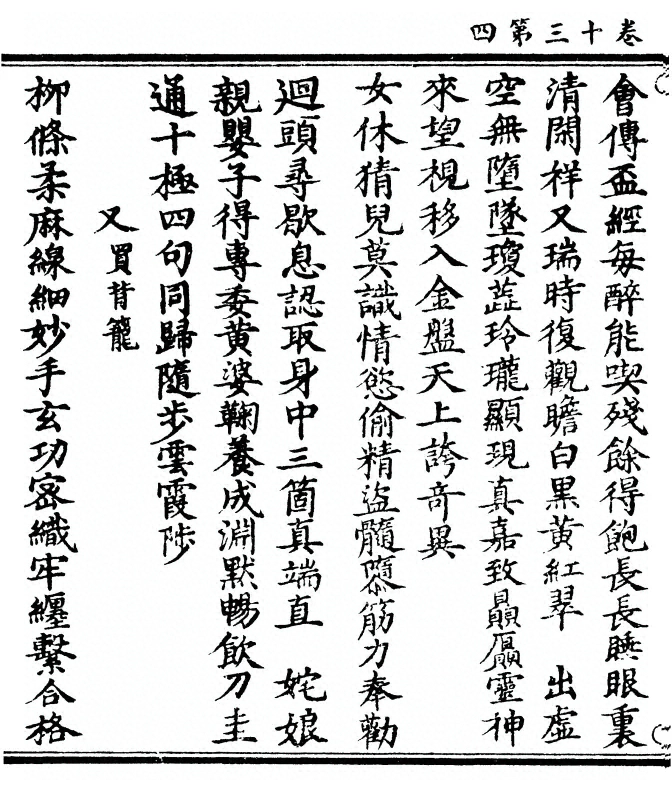 卷十三第四
會傳盃經每醉能喫殘餘得飽長長睡眼裏
清閑祥又瑞時復觀瞻白黑黃紅翠　出虛
空無墮墜瓊蕋玲瓏顯現真嘉致贔屭靈神
來望視移入金盤天上誇奇異
女休猜兒莫識情慾偷精盜髓隳筋力奉勸
迴頭尋歇息認取身中三箇真端直　姹娘
親嬰子得專委黃婆鞠養成淵默暢飲刀圭
通十極四句同歸隨步雲霞陟
又買背籠
柳條柔麻線細妙手玄功密織牢纏繫合格